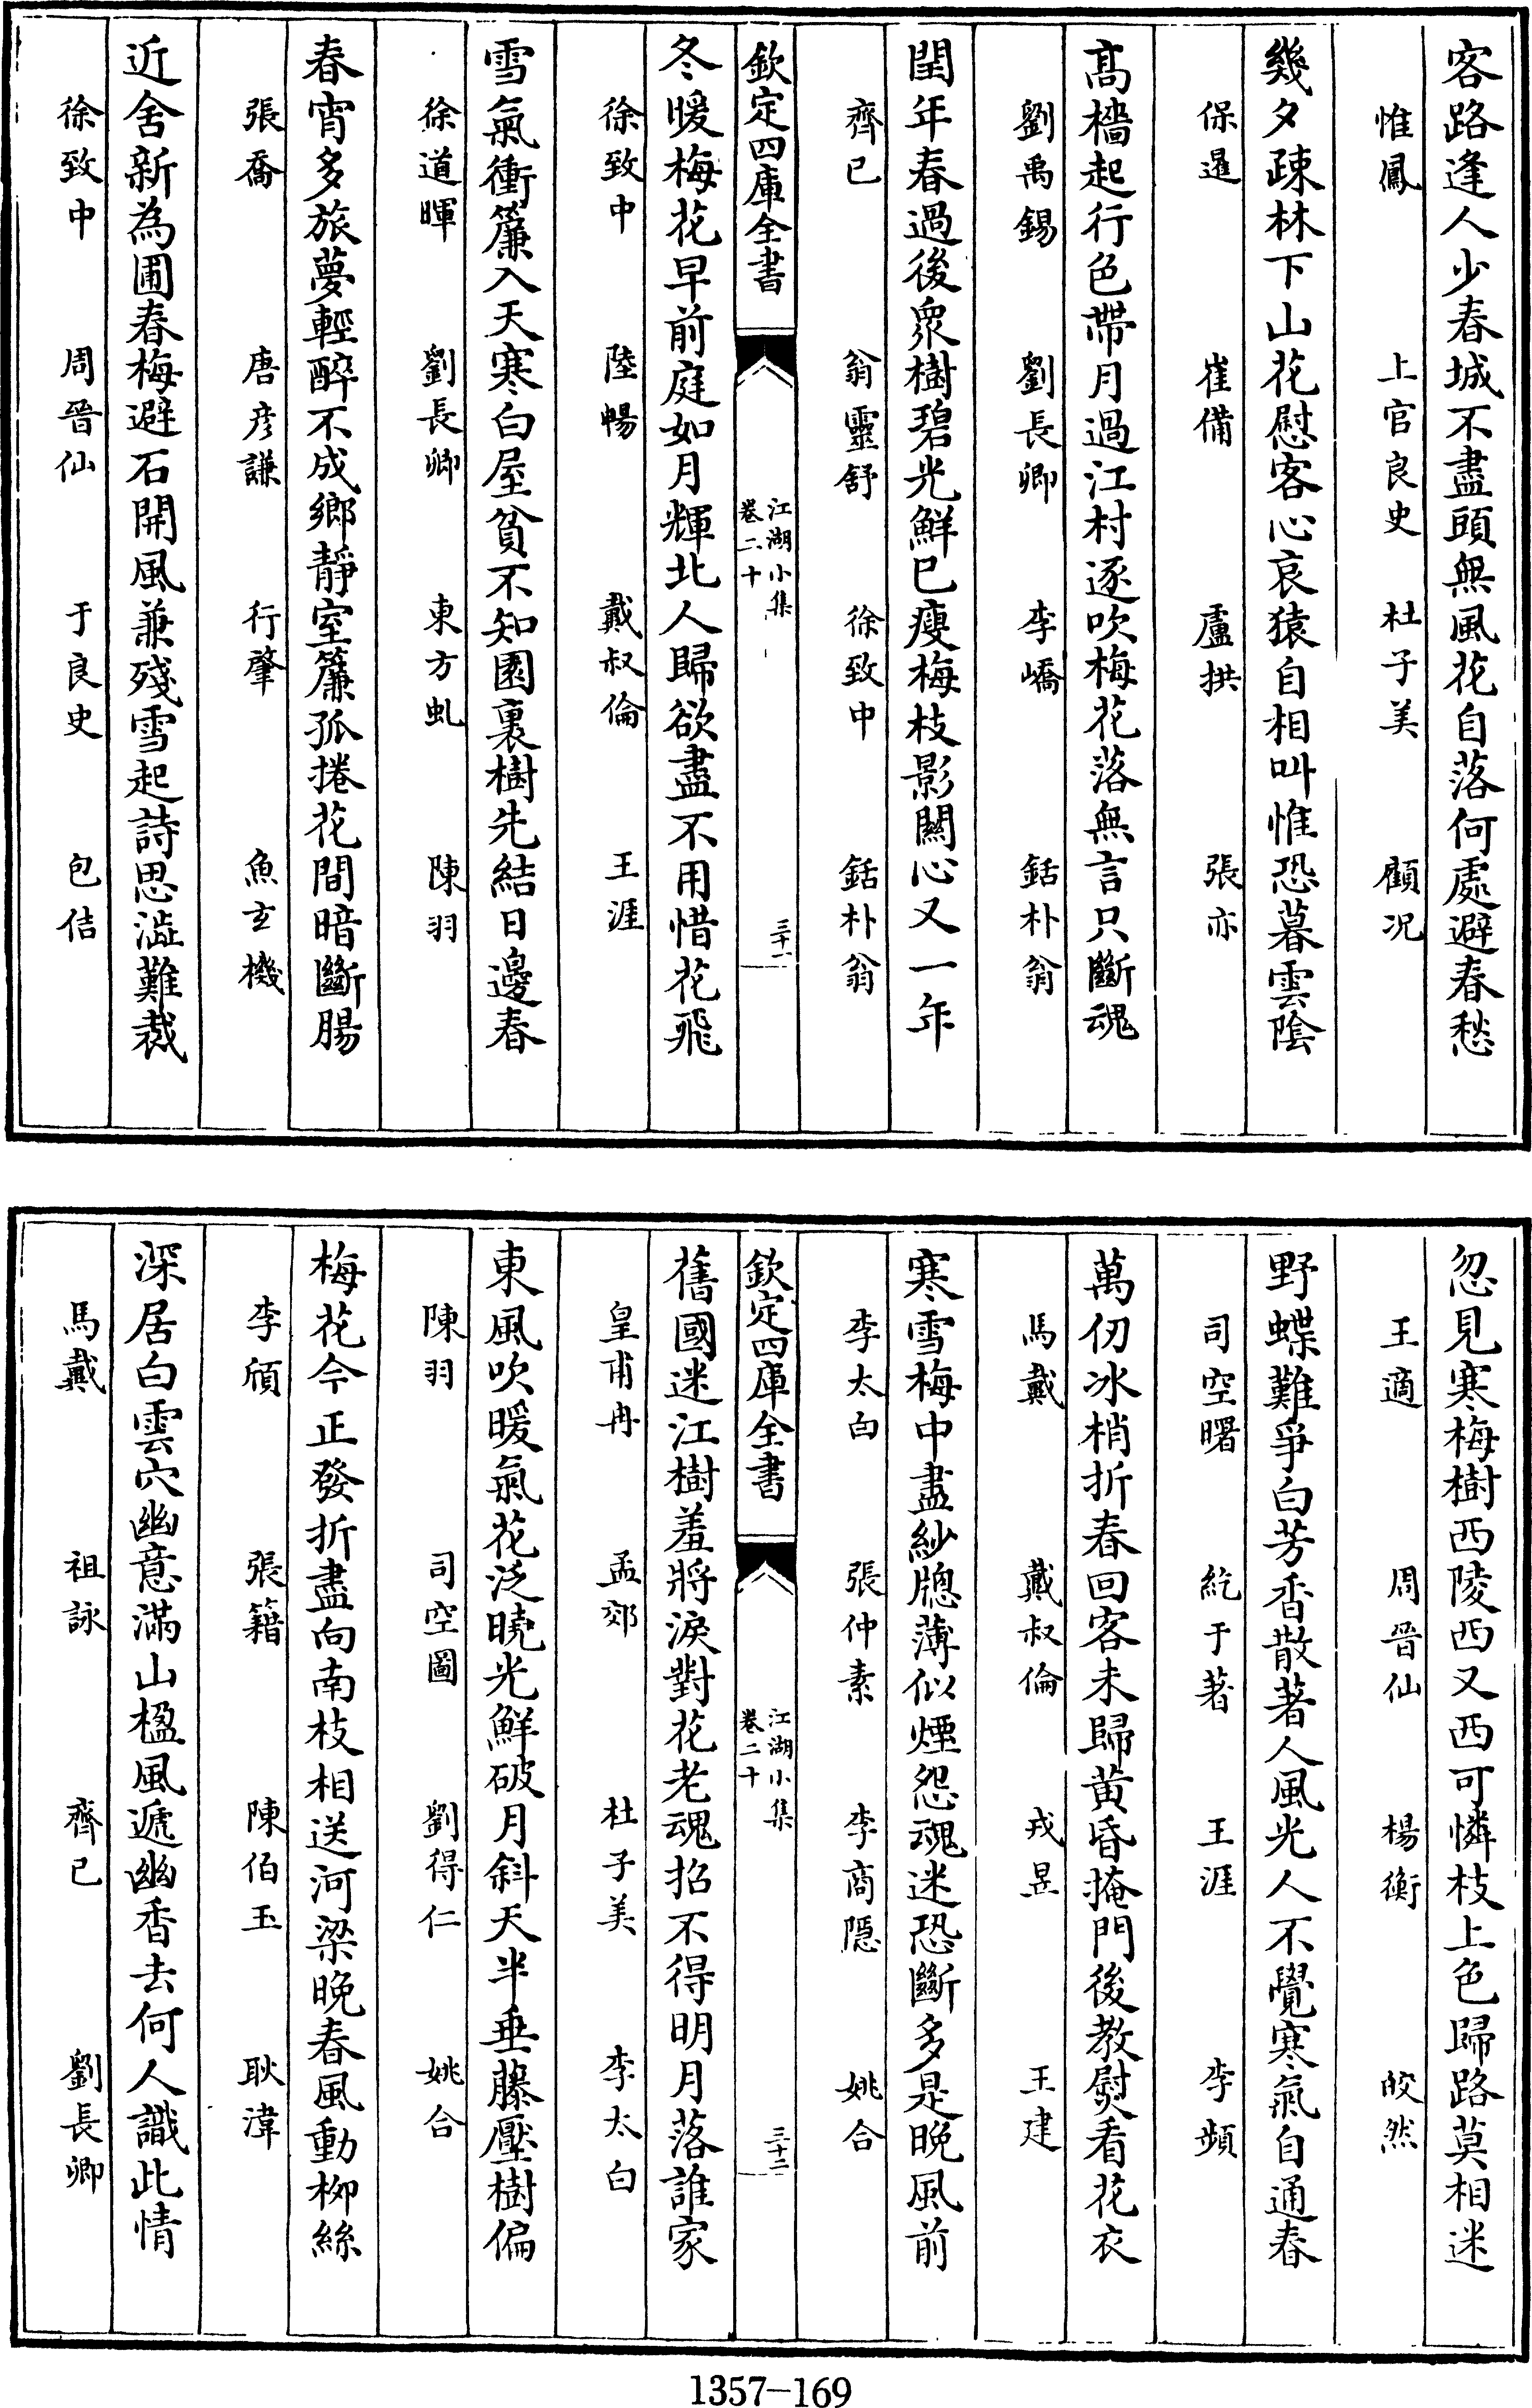 客路逢人少春城不盡頭無風花自落何處避春愁
惟鳳　上官良史　杜子美　顧况
幾夕疎林下山花慰客心哀猿自相叫惟恐暮雲隂
保暹　崔備　盧拱　張亦
髙檣起行色帶月過江村逐吹梅花落無言只斷魂
劉禹錫　劉長卿　李嶠　銛朴翁
閏年春過後衆樹碧光鮮已瘦梅枝影闗心又一年
齊已　翁靈舒　徐致中　銛朴翁
欽定四庫全書
江湖小集
卷二十
三十一
冬暖梅花早前庭如月輝北人歸欲盡不用惜花飛
徐致中　陸暢　戴叔倫　王涯
雪氣衝簾入天寒白屋貧不知園裏樹先結日邊春
徐道暉　劉長卿　東方虬　陳羽
春宵多旅夢輕醉不成鄉靜室簾孤捲花間暗斷腸
張喬　唐彦謙　行肇　魚玄機
近舍新為圃春梅避石開風兼殘雪起詩思澁難裁
徐致中　周晉仙　于良史　包佶
忽見寒梅樹西陵西又西可憐枝上色歸路莫相迷
王適　周晉仙　楊衡　皎然
野蝶難爭白芳香散著人風光人不覺寒氣自通春
司空曙　紇于著　王涯　李頻
萬仞冰梢折春回客未歸黄昏掩門後教熨看花衣
馬戴　戴叔倫　戎昱　王建
寒雪梅中盡紗牎薄似煙怨魂迷恐斷多是晚風前
李太白　張仲素　李商隠　姚合
欽定四庫全書
江湖小集
卷二十
三十二
舊國迷江樹羞將淚對花老魂招不得明月落誰家
皇甫冉　孟郊　杜子美　李太白
東風吹暖氣花泛曉光鮮破月斜天半垂藤壓樹偏
陳羽　司空圖　劉得仁　姚合
梅花今正發折盡向南枝相送河梁晚春風動栁絲
李頎　張籍　陳伯玉　耿湋
深居白雲穴幽意滿山楹風遞幽香去何人識此情
馬戴　祖詠　齊已　劉長卿
1357-169